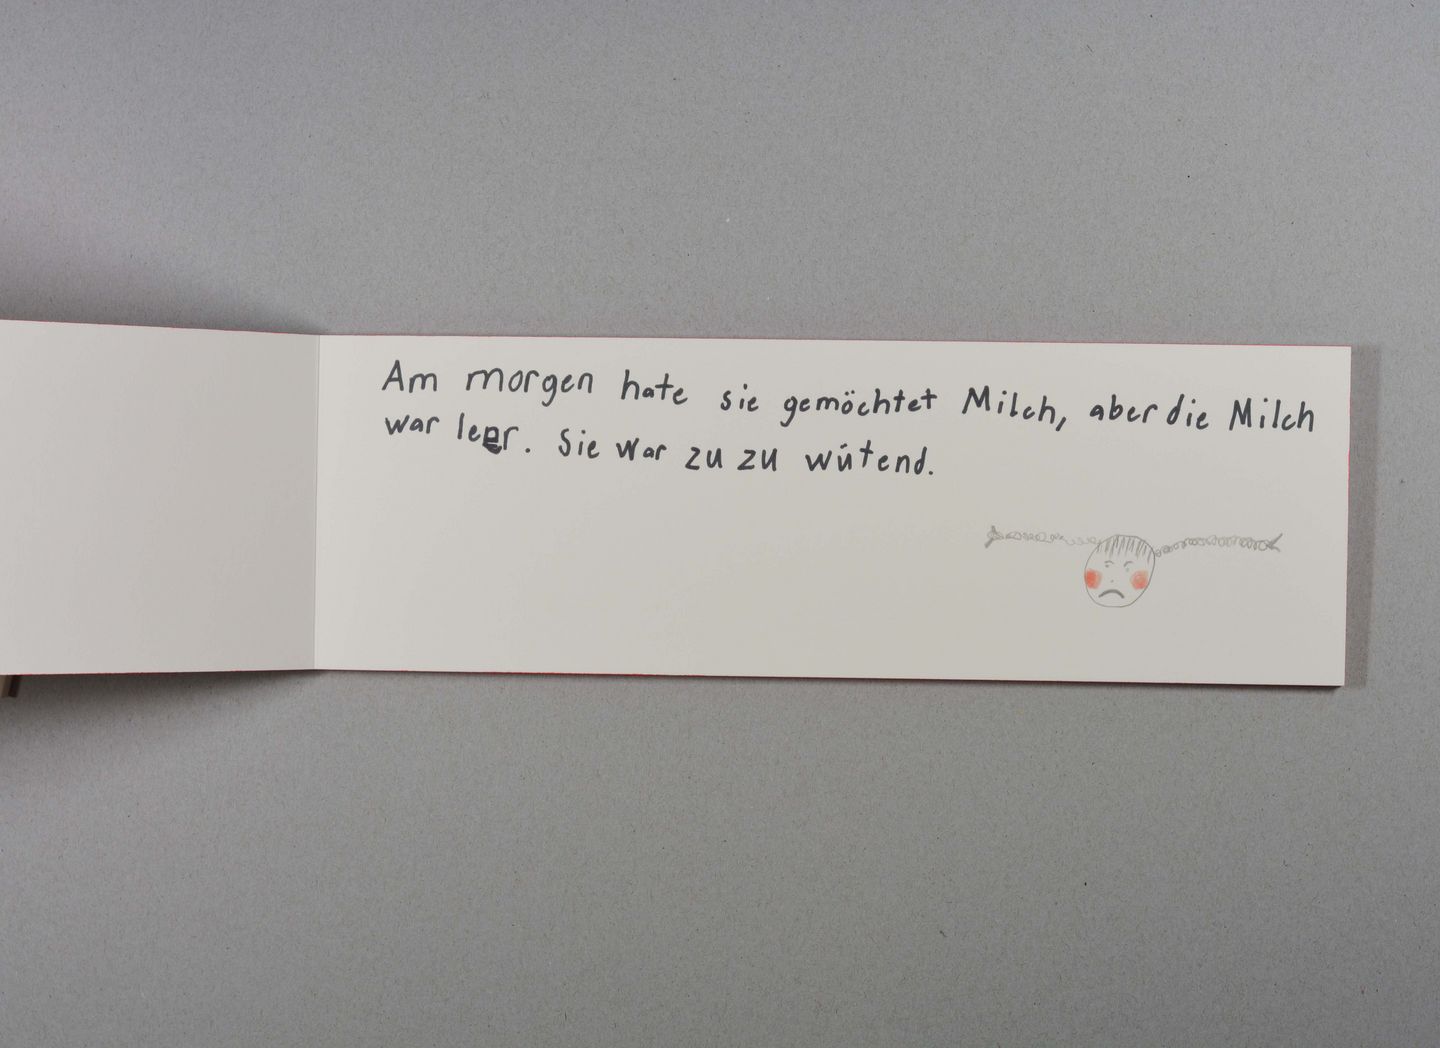 Am morgen hate sie gemöchtet Milch, aber die Milch
war leer. Sie war zu zu wütend.